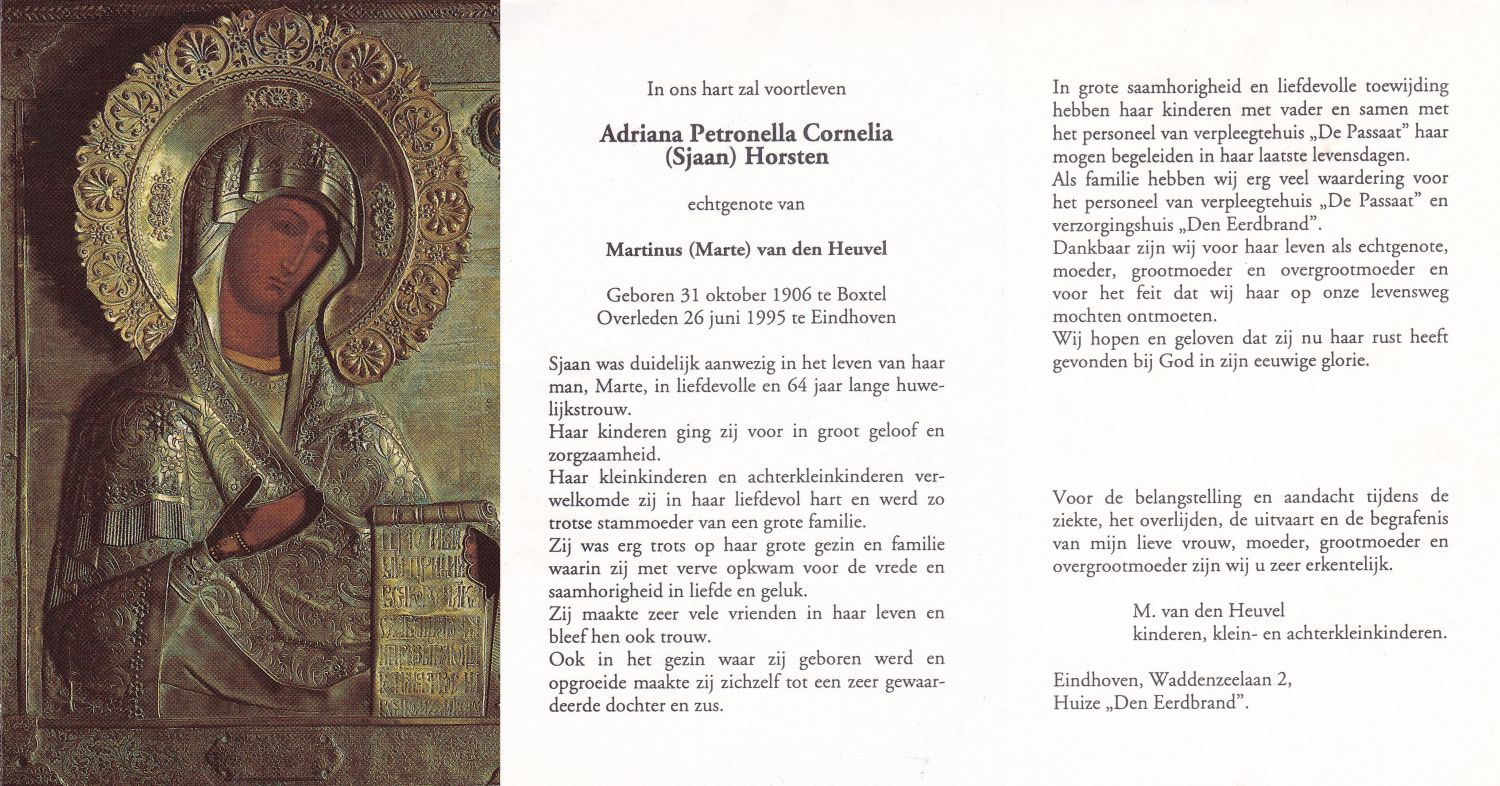 In ons hart zal voortleven
Adriana Petronella Cornelia
(Sjaan) Horsten
echtgenote van
Martinus (Marte) van den Heuvel
Geboren 31 oktober 1906 te Boxtel
Overleden 26 juni 1995 te Eindhoven
Sjaan was duidelijk aanwezig in het leven van haar
man, Marte, in liefdevolle en 64 jaar lange huwe-
lijkstrouw.
Haar kinderen ging zij voor in groot geloof en
zorgzaamheid.
Haar kleinkinderen en achterkleinkinderen ver-
welkomde zij in haar liefdevol hart en werd zo
trotse stammoeder van een grote familie.
Zij was erg trots op haar grote gezin en familie
waarin zij met verve opkwam voor de vrede en
saamhorigheid in liefde en geluk.
Zij maakte zeer vele vrienden in haar leven en
bleef hen ook trouw.
Ook in het gezin waar zij geboren werd en
opgroeide maakte zij zichzelf tot een zeer gewaar-
deerde dochter en zus.
In grote saamhorigheid en liefdevolle toewijding
hebben haar kinderen met vader en samen met
het personeel van verpleegtehuis „De Passaat” haar
mogen begeleiden in haar laatste levensdagen.
Als familie hebben wij erg veel waardering voor
het personeel van verpleegtehuis „De Passaat” en
verzorgingshuis „Den Eerdbrand”.
Dankbaar zijn wij voor haar leven als echtgenote,
moeder, grootmoeder en overgrootmoeder en
voor het feit dat wij haar op onze levensweg
mochten ontmoeten.
Wij hopen en geloven dat zij nu haar rust heeft
gevonden bij God in zijn eeuwige glorie.
Voor de belangstelling en aandacht tijdens de
ziekte, het overlijden, de uitvaart en de begrafenis
van mijn lieve vrouw, moeder, grootmoeder en
overgrootmoeder zijn wij u zeer erkentelijk.
M. van den Heuvel
kinderen, klein- en achterkleinkinderen.
Eindhoven, Waddenzeelaan 2,
Huize „Den Eerdbrand”.